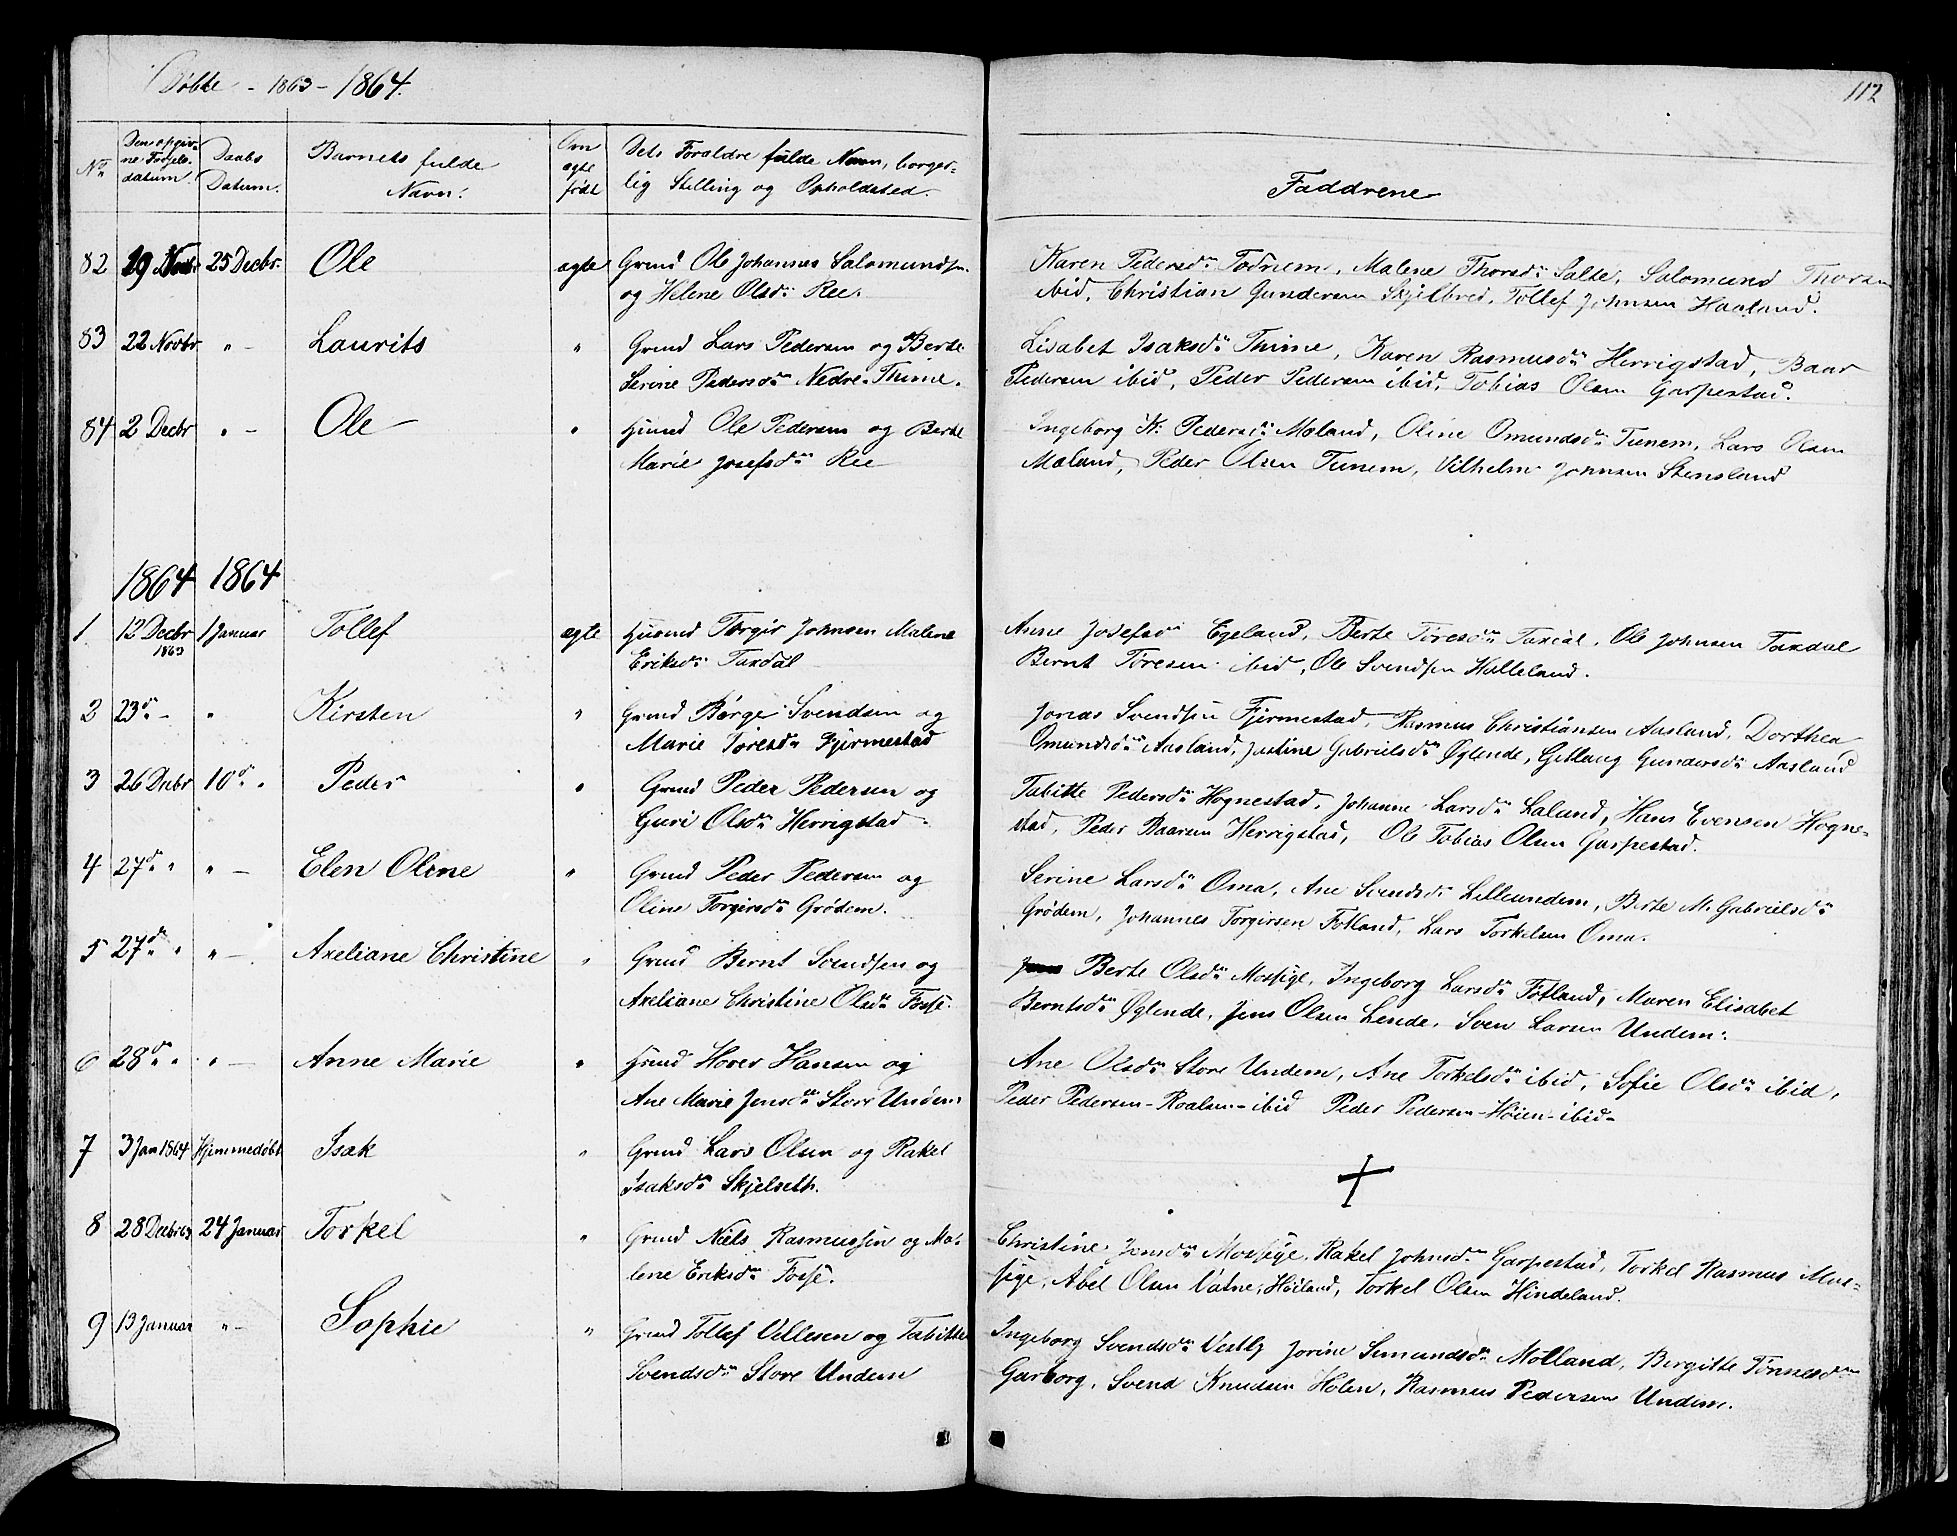 Døbte - 1863 - 1864.
112
No
Den opgiv-
ne Fødsels-
datum.
Daabs
Datum.
Barnets fulde
Navn.
Om
ægte
født
Dets Forældre fulde Navn, borger-
lig Stilling og Opholdsted.
Faddrene
82 29 Novbr 25 Decbr. Ole ægte Grmd Ole Johannes Salomundsen
og Helene Olsdr Ree.
Karen Pedersdr Todnem, Malene Thorsdr Salte, Salomund Thorsen
ibid, Christian Gundersen Skjelbred, Tollef Johnsen Haaland.
83 22 Novbr " - Laurits " Grmd Lars Pedersen og Berte
Serine Pedersdr Nedre-Thime.
Lisabet Isaksdr Thime, Karen Rasmusdr Herrigstad, Baar
Pedersen ibid, Peder Pedersen ibid, Tobias Olsen Garpestad.
84 2 Decbr " - Ole " Husmd Ole Pedersen og Berte
Marie Josefsdr Ree
Ingeborg K. Pedersdr Moland, Oline Omundsdr Tunem, Lars Olsen
Moland, Peder Olsen Tunem, Vilhelm Johnsen Stensland
1864 1864
1 12 Decbr 1 Januar Tollef ægte Husmd Torgir Johnsen Malene
1863
Eriksdr Taxdal
Anne Josefsdr Egeland, Berte Toresdr Taxdal, Ole Johnsen Taxdal
Bernt Toresen ibid, Ole Svendsen Halleland.
2 23d - " Kirsten " Grmd Børge Svendsen og
Marie Toresdr Fjermestad
Jonas Svendsen Fjermestad, Rasmus Christiansen Aasland, Dorthea
Omundsdr Aasland, Justine Gabrielsdr Øglende, Gitlaug Gundersdr Aasland
3 26 Decbr 10d " Peder " Grmd Peder Pedersen og
Guri Olsdr Herrigstad
Tabitte Pedersdr Hognestad, Johanne Larsdr Laland, Hans Evensen Hogne-
stad, Peder Baarsen Herrigstad, Ole Tobias Olsen Garpestad.
4 27d " " - Elen Oline " Grmd Peder Pedersen og
Oline Torgirsdr Grødem.
Serine Larsdr Oma, Ane Svendsdr Lilleundem, Berte M. Gabrielsdr
Grødem, Johannes Torgirsen Fotland, Lars Torkelsen Oma.
5 27d " " - Axeliane Christine " Grmd Bernt Svendsen og
Axeliane Christine Olsdr Fosse.
Berte Olsdr Mossige, Ingeborg Larsdr Fotland, Maren Elisabet
Berntsdr Øglende, Jens Olsen Lende, Sven Larsen Undem.
6 28d " " - Anne Marie " Grmd Hover Hansen og
Ane Marie Jensdr Store Undem
Ane Olsdr Store Undem, Ane Torkelsdr ibid, Sofie Olsdr ibid,
Peder Pedersen-Roalsen-ibid Peder Pedersen-Høien-ibid-
7 3 Jan 1864 Hjemmedøbt Isak " Grmd Lars Olsen og Rakel
Isaksdr Skjelseth.
8 28 Decbr 63 24 Januar Torkel " Grmd Niels Rasmussen og Ma-
lene Eriksdr Fosse.
Christine Jensdr Mossige, Rakel Johnsdr Garpestad, Torkel Rasmus Mos-
sige, Abel Olsen Vatne, Høiland, Torkel Olsen Hindeland.
9 13 Januar " - Sophie " Grmd Tollef Vellesen og Tabitte
Svendsdr Store Undem
Ingeborg Svendsdr Vestly Jorine Semundsdr Molland, Bergitte Tønnesdr
Garborg, Svend Knudsen Holen, Rasmus Pedersen Undem.